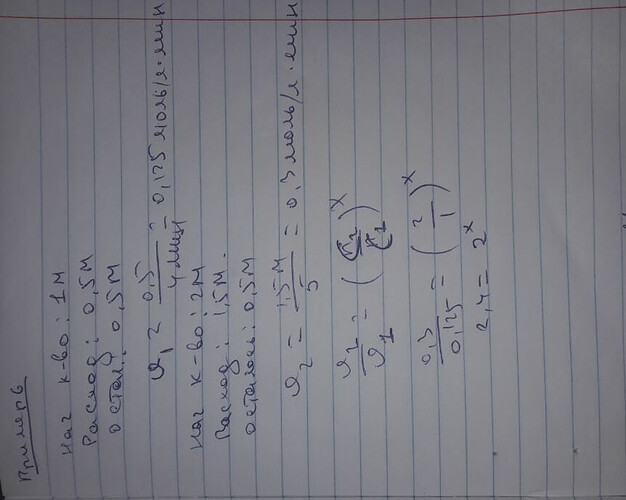 Пример
Нач к-во: 1М
Расход: 0,5М
остал: 0,5М
υ₁ = 0,5 / 4 мин = 0,125 моль/л·мин
Нач к-во: 2М
Расход: 1,5М.
осталось: 0,5М
υ₂ = 1,5М / 5 = 0,3 моль/л·мин
υ₂ / υ₁ = (C₂ / C₁)ˣ
0,3 / 0,125 = (2 / 1)ˣ
2,4 = 2ˣ